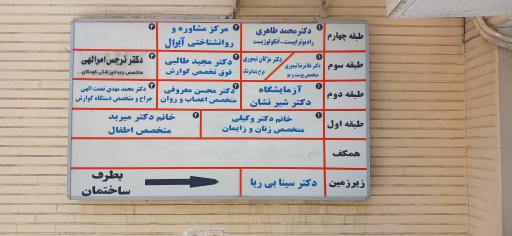 طبقه چهارم
۱
دکتر محمد طاهری
رادیوتراپیست - انکولوژیست
۲
مرکز مشاوره و
روانشناختی آیرال
۳
طبقه سوم
۱
دکتر غلامرضا تیموری
متخصص پوست و مو
دکتر مژگان تیموری
۲
دکتر مجید طالبی
فوق تخصص گوارش
۳
دکتر نرجس امرالهی
طبقه دوم
۱
آزمایشگاه
دکتر شیر نشان
۲
دکتر محسن معروفی
متخصص اعصاب و روان
۳
دکتر محمد مهدی نعمت الهی
جراح و متخصص دستگاه گوارش
طبقه اول
۱
خانم دکتر وکیلی
متخصص زنان و زایمان
۲
خانم دکتر میربد
متخصص اطفال
همکف
زیرزمین
دکتر سینا بی ریا
بطرف
ساختمان